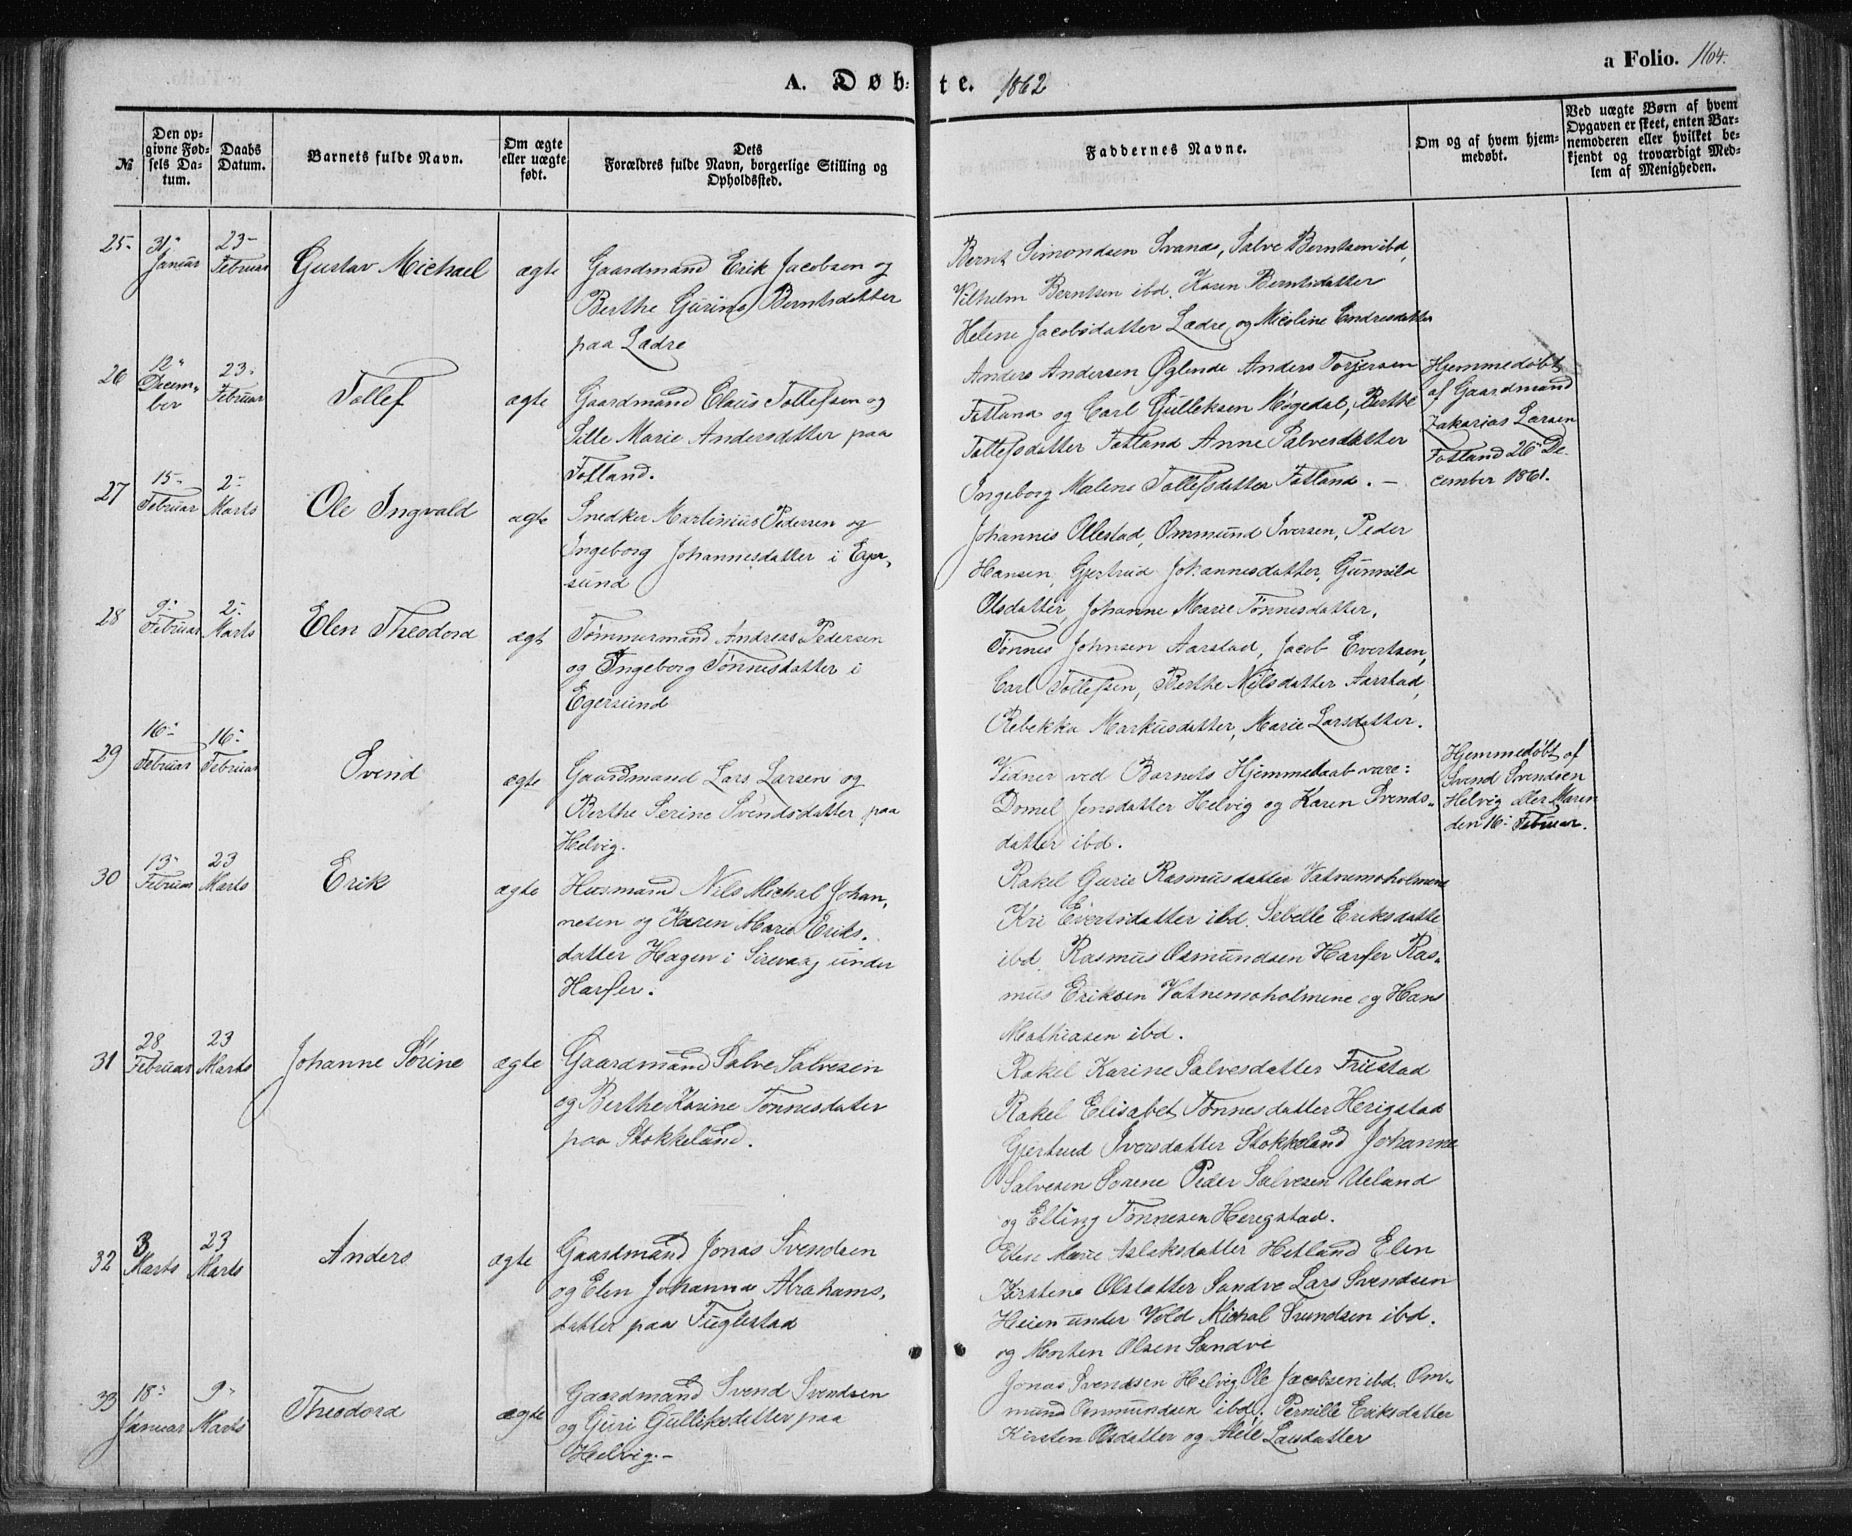 A. Døb- te. 1862
a Folio. 164.
№
Den op-
givne Fød-
sels Da-
tum.
Daabs
Datum.
Barnets fulde Navn.
Om ægte
eller uægte
født.
Dets
Forældres fulde Navn, borgerlige Stilling og
Opholdssted.
Faddernes Navne.
Om og af hvem hjem-
medøbt.
Ved uægte Børn af hvem
Opgaven er skeet, enten Bar-
nemoderen eller hvilket be-
kjendt og troværdigt Med-
lem af Menigheden.
25-
31"
Januar
23-
Februar
Gustav Michael
ægte
Gaardmand Erik Jacobsen og
Berthe Gurine Berntsdatter
paa Lædre
Bernt Simondsen Svanes, Salve Berntsen ibd,
Vilhelm Berntsen ibd. Karen Berntsdatter
Helene Jacobsdatter Lædre og Nicoline Endresdatter
26
12"
Decem-
ber
23-
Februar
Tollef
ægte
Gaardmand Claus Tollefsen og
Sille Marie Andersdatter paa
Fotland.
Anders Andersen Øglende Anders Torjersen
Fotland og Carl Gulleksen Møgedal, Berthe
Tollefsdatter Fotland Anne Salvesdatter
Ingeborg Malene Tollefsdatter Fotland. -
Hjemmedøbt
af Gaardmand
Zakarias Larsen
Fotland 26" De-
cember 1861.
27
15-
Februar
2-
Marts
Ole Ingvald
ægte
Snedker Martinius Pedersen og
Ingeborg Johannesdatter i Eger-
sund
Johannes Ollestad, Ommund Iversen, Peder
Hansen, Gjertrud Johannesdatter, Gunnild
Olsdatter, Johanne Marie Tønnesdatter.
28
9-
Februar
2-
Marts
Elen Theodora
ægt
Tømmermand Andreas Pedersen
og Ingeborg Tønnesdatter i
Egersund
Tønnes Johnsen Aarstad, Jacob Evertsen,
Carl Tollefsen, Berthe Nilsdatter Aarstad,
Rebekka Markusdatter, Marie Larsdatter.
29
16-
Februar
16-
Februar
Svend
ægte
Gaardmand Lars Larsen og
Berthe Serine Svendsdatter paa
Helvig.
Vidner ved Barnets Hjemmedaab vare:
Domel Jensdatter Helvig og Karen Svends-
datter ibd.
Hjemmedøbt af
Svend Svendsen
Helvig eller Maren
den 16- Februar.
30
13"
Februar
23
Marts
Erik
ægte
Husmand Nils Michal Johan-
nesen og Karen Marie Eriks-
datter Hagen i Sirevaag under
Harfer.
Rakel Gurie Rasmusdatter Vatnemoholmene
Kri Evertsdatter ibd. Sebelle Eriksdatte
ibd. Rasmus Osmundsen Harfer Ras-
mus Eriksen Vatnemoholmene og Hans
Mathiasen ibd.
31
28
Februar
23
Marts
Johanne Sørine
ægte
Gaardmand Salve Salvesen
og Berthe Karine Tønnesdater
paa Stokkeland.
Rakel Karine Salvesdatter Friestad
Rakel Elisabet Tønnesdatter Herigstad
Gjertrud Iversdatter Stokkeland Johanne
Salvesen Sørene Peder Salvesen Ueland
og Elling Tønnesen Heregstad.
32
3
Marts
23
Marts
Anders
ægte
Gaardmand Jonas Svendsen
og Elen Johanna Abrahams-
datter paa Fuglestad
Elen Marie Aslaksdatter Hetland Elen
Kirstene Olsdatter Sandve Lars Svendsen
Heien under Vold Michal Svendsen ibd.
og Morten Olsen Sandve
33
18-
Januar
9"
Marts
Theodora
ægte
Gaardmand Svend Svendsen
og Guri Gulliksdatter paa
Helvig.-
Jonas Svendsen Helvig Ole Jacobsen ibd. Om-
mund Ommundsen ibd. Pernille Eriksdatter
Kirsten Olsdatter og Lasdatter